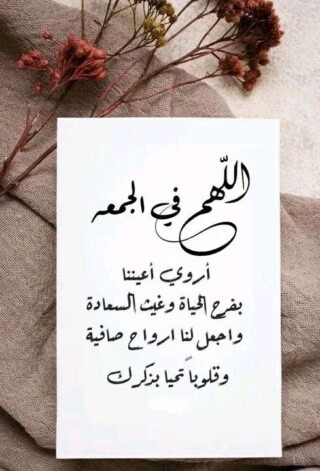 اللّهم في الجمعه
أروي أعيننا
بفرح الحياة وغيث السعادة
واجعل لنا ارواح صافية
وقلوباً تحيا بذكرك